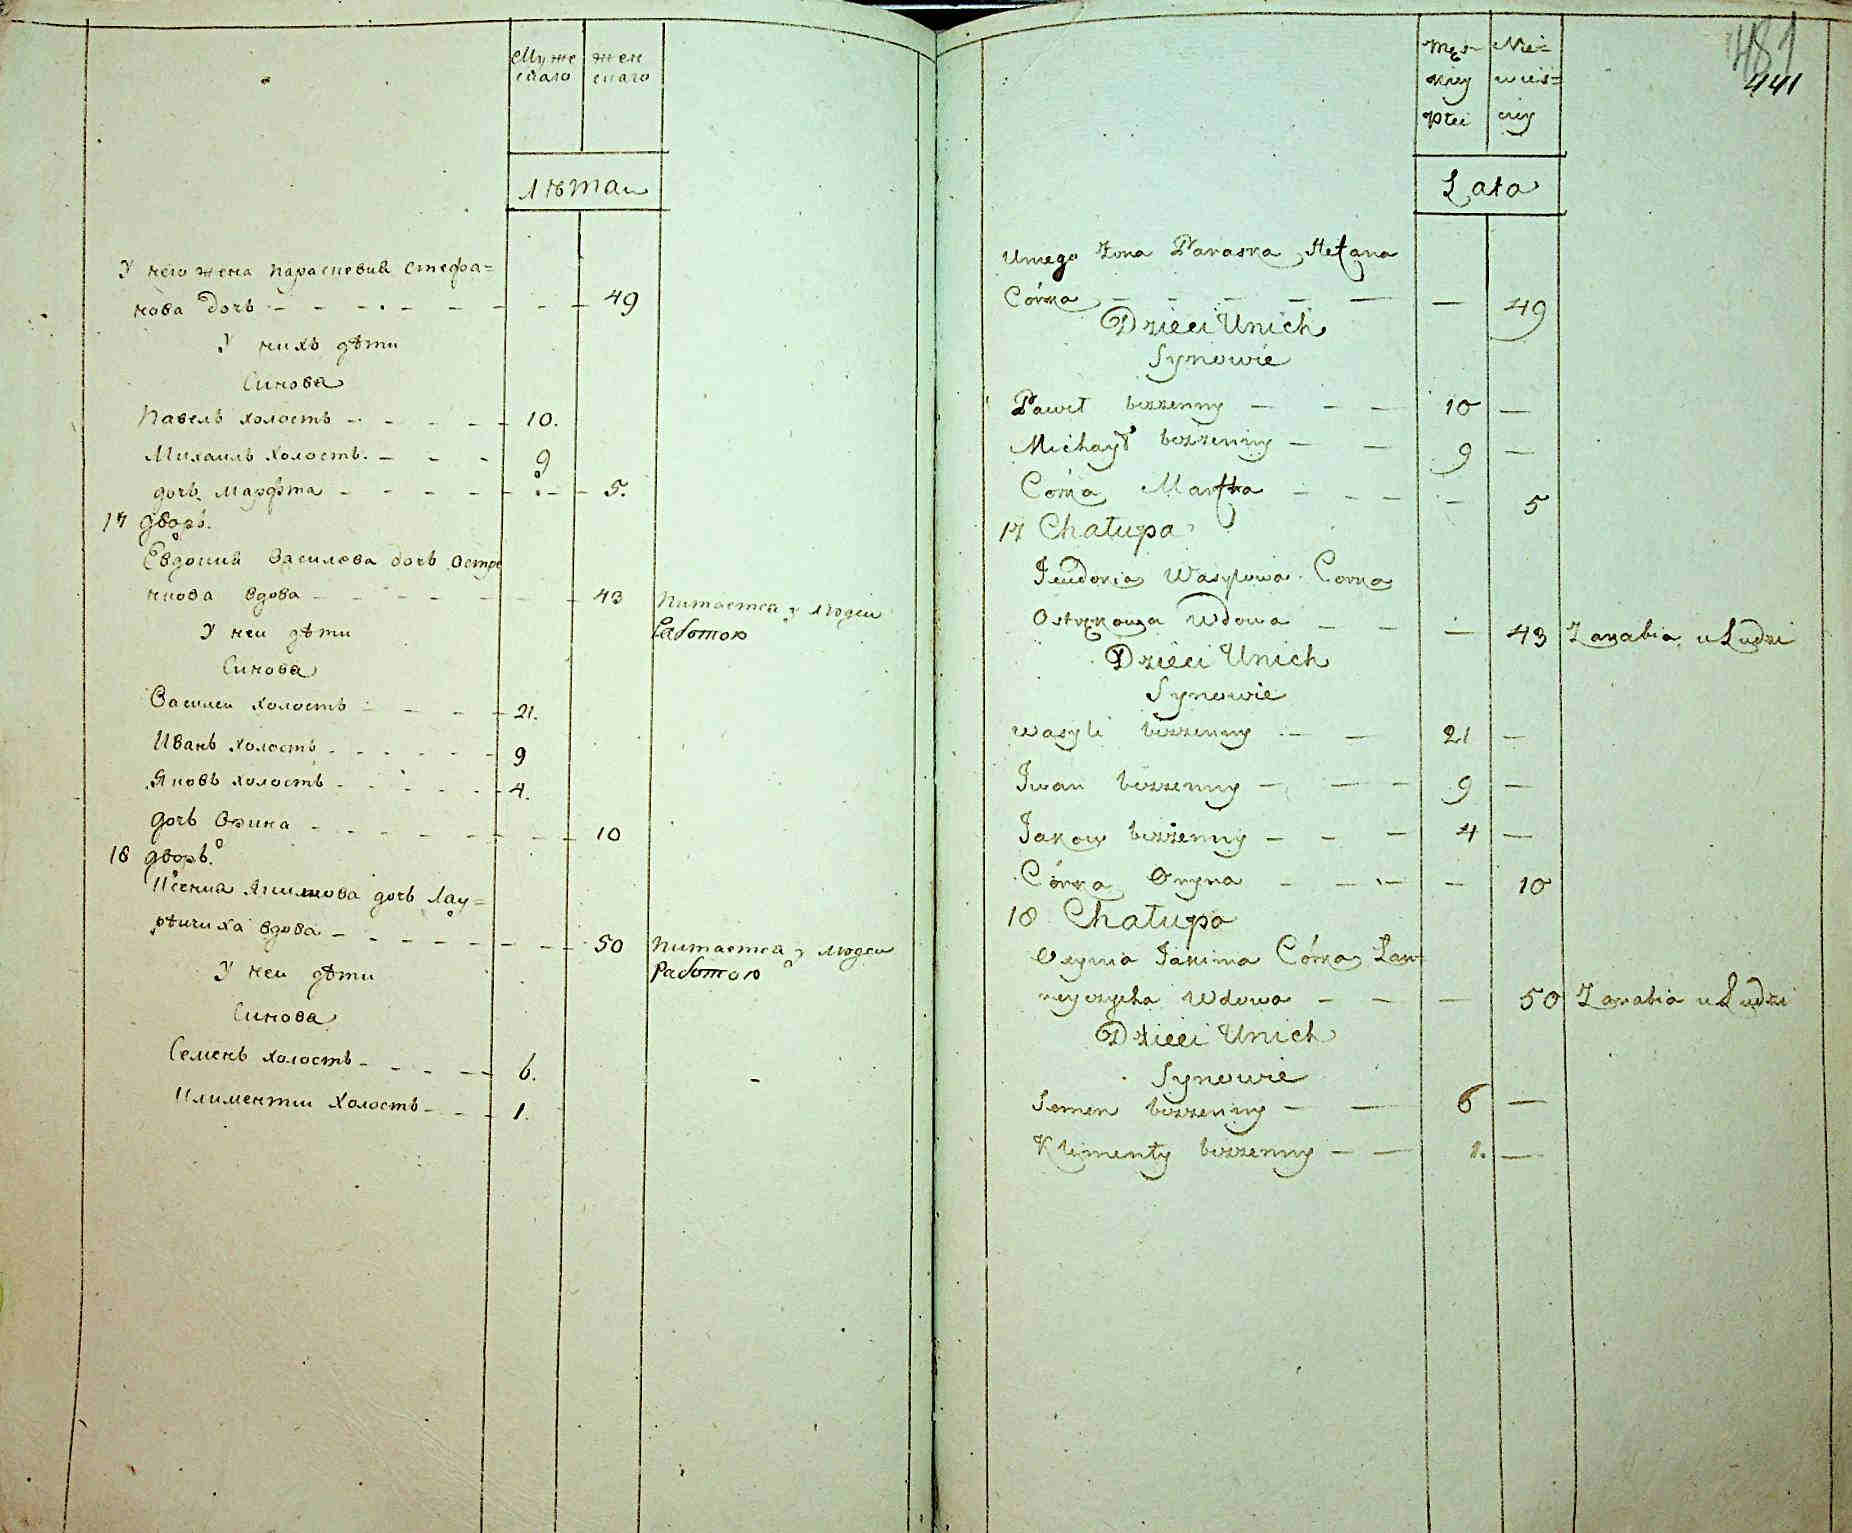 Муже
скаго
жен
скаго
лѣтаи
У него жена параскевия стефа=
нова дочь 49
У нихъ дѣти
Синова
Павелъ холостъ 10.
Михаилъ холостъ. 9
дочь марфта 5.
17 дворъ.
Евдокия Василева дочь остре
нкова вдова 43 питается у людеи
работою
У неи дѣти
Синова
Василеи холостъ 21.
Иванъ холостъ 9
Яковъ холостъ 4.
дочь Орина 10
18 дворъ.
якимова дочь Лау=
рѣичиха вдова 50 питается у людеи
работою
У неи дѣти
Синова
Семенъ холостъ 6.
Климентии холостъ 1.
481
441
męs=
kiey
płci
Nie=
wieś=
ciey
Lata
Uniego Żona Paraska Stefana
Córka 49
Dzieci Unich
Synowie
Paweł bezzenny 10
Michaył bezzenny 9
Córka Marfta 5
17 Chałupa
Jeudokia Wasylowa Corka
Wdowa 43 Zarabia u Ludzi
Dzieci Unich
Synowie
Wasyli bezzenny 21
Iwan bezzenny 9
Jakow bezzenny 4
Córka Oryna 10
18 Chałupa
Jakima Córka Law=
reyczycha Wdowa 50 Zarabia u Ludzi
Dzieci Unich
Synowie
Semen bezzenny 6
Klimenty bezzenny 1.